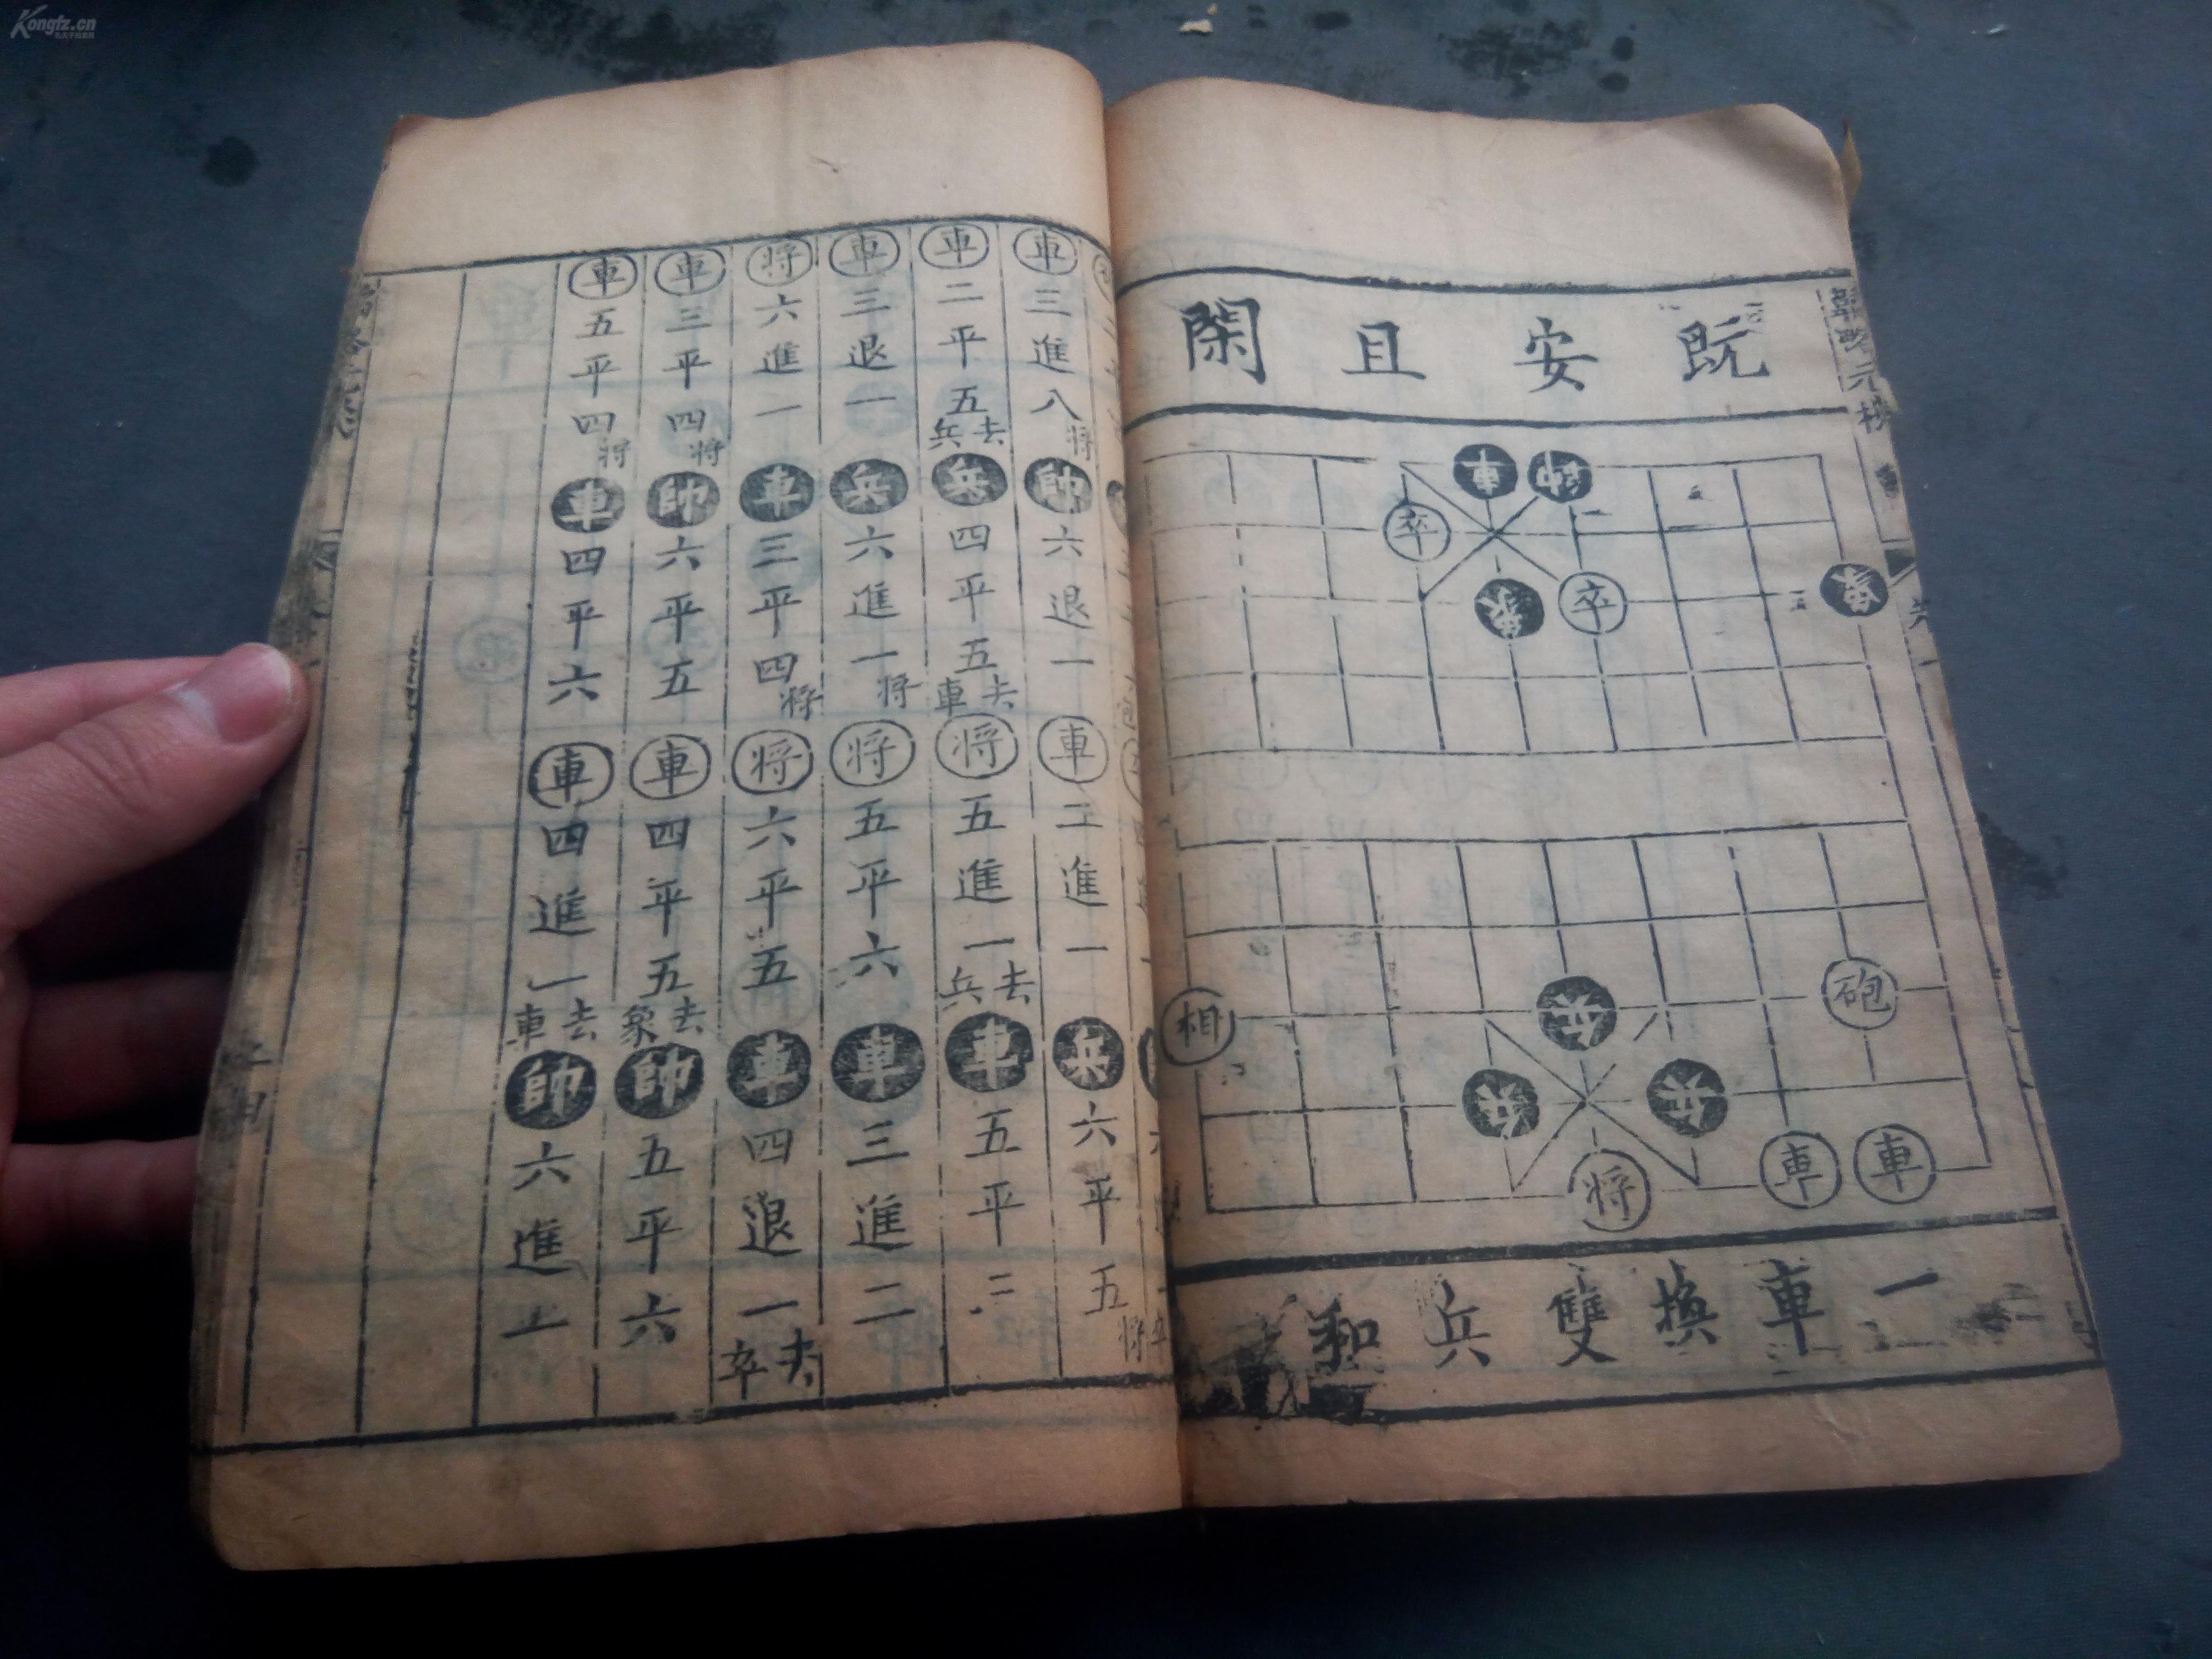 Kongfz.cn
既安且閑
車 帥
卒
象 卒 象
兵 砲
相
兵 兵
将 車 車
一車換雙兵和
車三進八将 帥六退一 車二進一 兵六平五将
車二平五去兵 兵四平五去車 将五進一去兵 車五平二
車三退一 兵六進一将 将五平六 車三進二
将六進一 車三平四将 将六平五 車四退一去卒
車三平四将 帥六平五 車四平五去象 帥五平六
車五平四将 車四平六 車四進一去車 帥六進